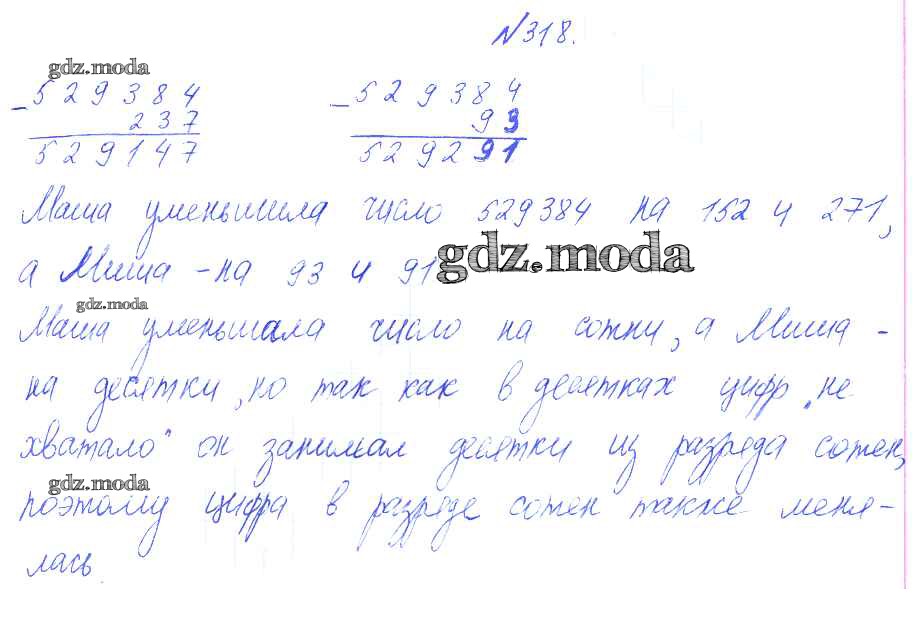 N318.
gdz.moda
- 529384   - 529384
237   93
529147   529291
Маша уменьшила число 529384 на 152 и 271,
а Миша - на 93 и 91
gdz.moda
gdz.moda
Маша уменьшала число на сотни, а Миша -
на десятки, но так как в десятках цифр „не
хватало" он занимал десятки из разряда сотен,
gdz.moda
поэтому цифра в разряде сотен также меня-
лась